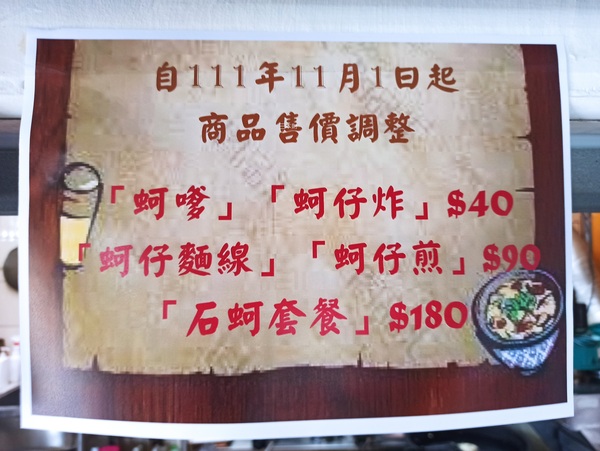 自111年11月1日起
商品售價調整
「蚵嗲」「蚵仔炸」$40
「蚵仔麵線」「蚵仔煎」$90
「石蚵套餐」$180